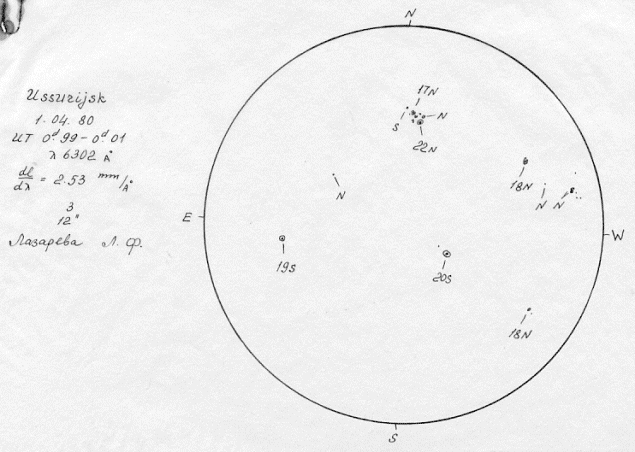 Ussurijsk
1.04.80
UT 0ᵈ.99–0ᵈ.01
λ 6302 Å
dl/dλ = 2.53 mm/Å
3
12"
Лазарева Л. Ф.
N
17N
N
S
22N
18N
N
N
N
E
W
19S
20S
18N
S